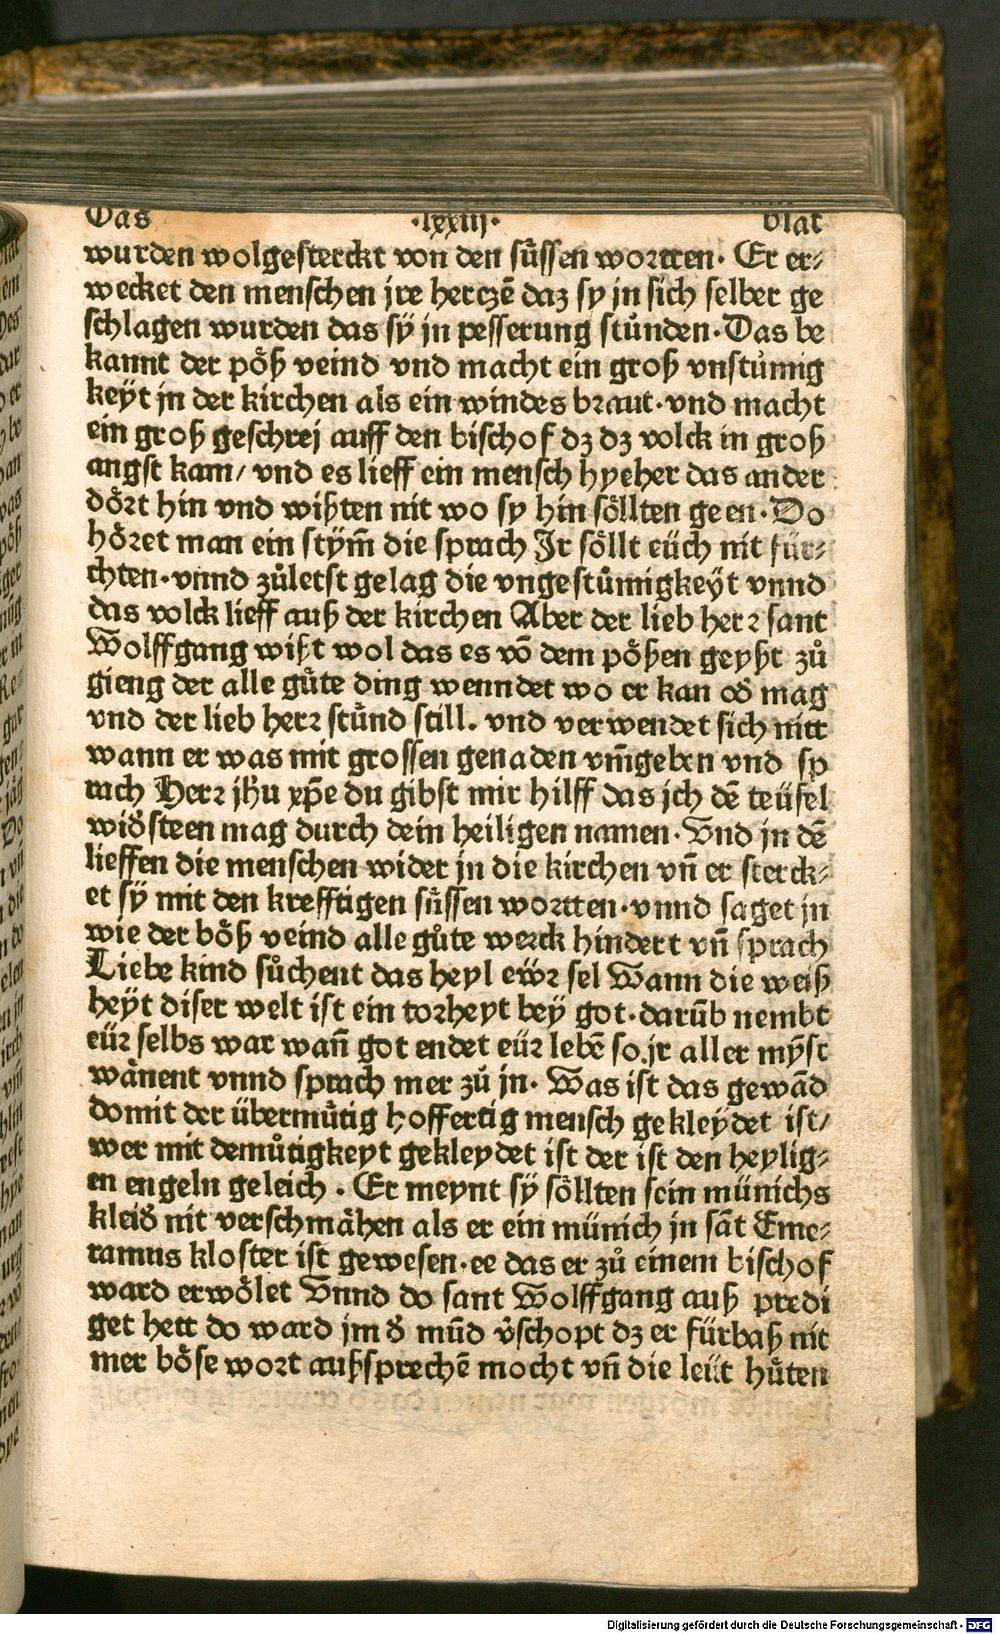 Das ·lxxiij· blat
wurden wolgesterckt von den sűssen wortten. Er er⸗
wecket den menschen jre hertzē daz sy jn sich selber ge
schlagen wurden das sÿ jn pesserung stůnden. Das be
kannt der pöß veind vnd macht ein groß vnstůmig
keÿt jn der kirchen als ein windes braut. vnd macht
ein groß geschrej auff den bischof dz dz volck in groß
angst kam/ vnd es lieff ein mensch hyeher das ander
dört hin vnd wißten nit wo sy hin söllten geen. Do
höret man ein stym̄ die sprach Jr söllt eüch nit für⸗
chten. vnnd zůletst gelag die vngestůmigkeÿt vnnd
das volck lieff auß der kirchen Aber der lieb herr sant
Wolffgang wißt wol das es vō dem pößen geyßt zů
gieng der alle gůte ding wenndet wo er kan od̕ mag
vnd der lieb herr stůnd still. vnd verwendet sich nitt
wann er was mit grossen genaden vm̄geben vnd sp
rach Herr jh̄u xp̄e du gibst mir hilff das jch dē teüfel
wid̕steen mag durch dein heiligen namen. Vnd jn dē
lieffen die menschen wider jn die kirchen vn̄ er sterck⸗
et sÿ mit den krefftigen sűssen wortten. vnnd saget jn
wie der böß veind alle gůte werck hindert vn̄ sprach
Liebe kind sůchent das heyl eẅr sel Wann die weiß
heÿt diser welt ist ein torheyt bey got. darūb nembt
eür selbs war wan̄ got endet eür lebē so jr aller mÿst
wänent vnnd sprach mer zů jn. Was ist das gewād
domit der übermůtig hoffertig mensch gekleydet ist/
wer mit demůtigkeyt gekleydet ist der ist den heylig⸗
en engeln geleich. Er meynt sÿ söllten sein münichs
kleid̕ nit verschmähen als er ein münich jn sāt Eme⸗
ramus kloster ist gewesen. ee das er zů einem bischof
ward erwölet Vnnd do sant Wolffgang auß predi
get hett do ward jm d̕ mūd v̕schopt dz er fürbaß nit
mer böse wort außsprechē mocht vn̄ die leüt hůten
Digitalisierung gefördert durch die Deutsche Forschungsgemeinschaft - DFG